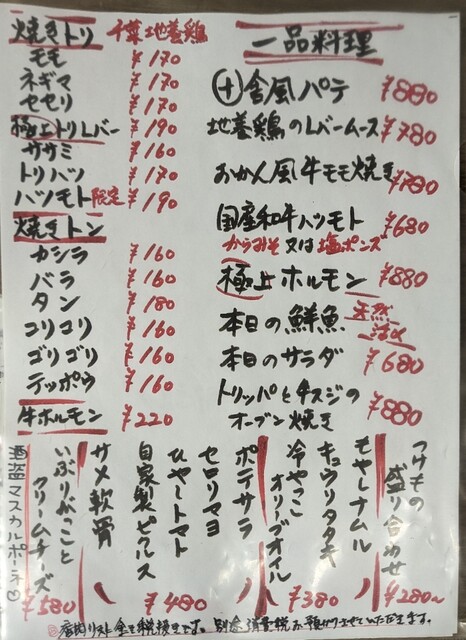 焼きトリ 千葉地養鶏
モモ ¥170
ネギマ ¥170
セセリ ¥170
極上トリレバー ¥190
ササミ ¥160
トリハツ ¥170
ハツモト 限定 ¥190
焼きトン
カシラ ¥160
バラ ¥160
タン ¥180
コリコリ ¥160
ゴリゴリ ¥160
テッポウ ¥160
牛ホルモン ¥220
一品料理
田舎風パテ ¥880
地養鶏のレバームース ¥780
おかん風牛モモ焼き ¥780
国産和牛ハツモト ¥680
からみそ又は塩ポンズ
極上ホルモン ¥880
本日の鮮魚 天然
本日のサラダ ¥680
トリッパと牛スジの
オーブン焼き ¥880
つけもの
盛り合わせ
もやしナムル
¥280~
キュウリタタキ
冷やっこ
オリーブオイル
¥380
ポテサラ
セロリマヨ
ひや〜トマト
自家製ピクルス
¥480
サメ軟骨
いぶりがっこと
クリームチーズ
酒盗マスカルポーネ♡
¥580